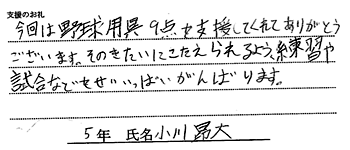 支援のお礼
今回は野球用具9点を支援してくれてありがとう
ございます。そのきたいにこたえられるよう、練習や
試合などでせいいっぱいがんばります。
5年 氏名 小川 昂大